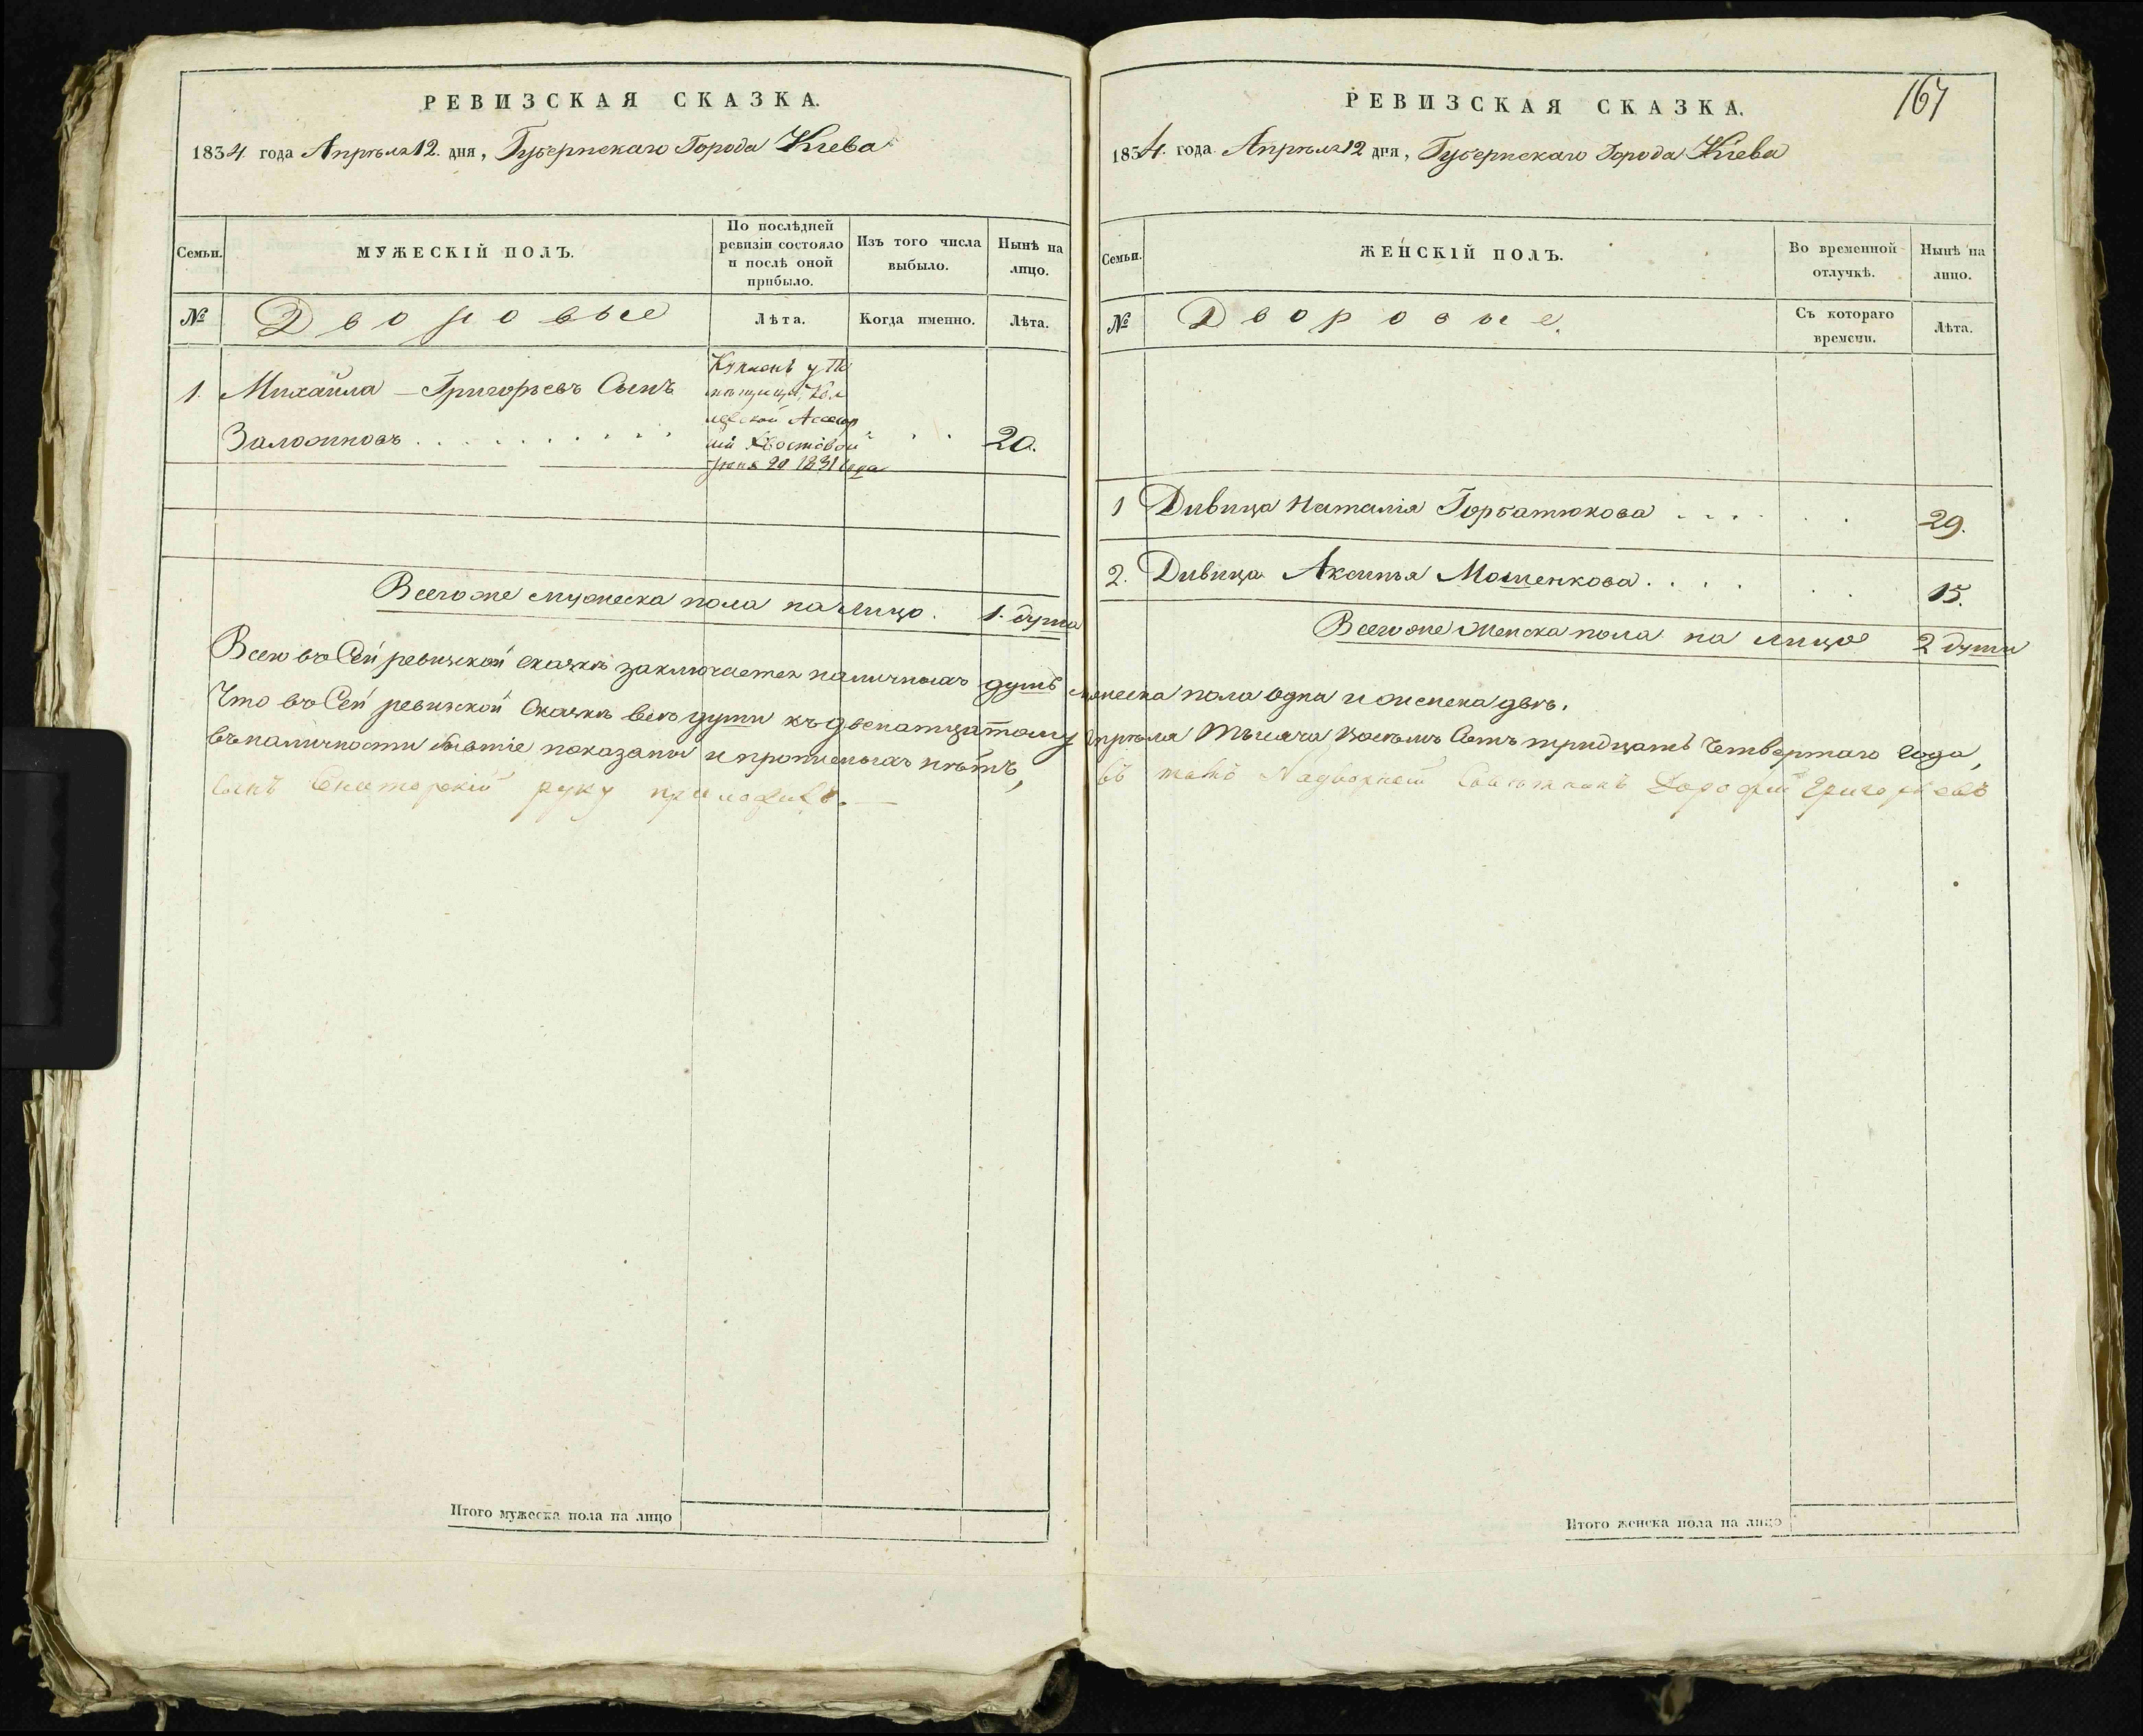 РЕВИЗСКАЯ СКАЗКА.
1834 года Апрѣля 12. дня, Губернскаго Города Кіева
Семьи.
МУЖЕСКІЙ ПОЛЪ.
По послѣдней ревизіи состояло и послѣ оной прибыло.
Изъ того числа выбыло.
Нынѣ на лицо.
№
Дворовые
Лѣта.
Когда именно.
Лѣта.
1. Михайла Григорьевъ Сынъ
Заложновъ
Купленъ у По
мѣщицы Кол
лежской Ассесор
ши Хвостовой
Іюня 20 1831 года
20.
Всего же мужеска пола на лицо. 1. душа
Всего въ Сей ревизской сказкѣ заключается наличныхъ душъ мужеска пола одна и женска двѣ.
Что въ Сей ревизской Сказкѣ всѣ души къ двенатцатому Апрѣля Тысяча Восемь Сотъ тридцать Четвертаго года,
въ наличности бывшіе показаны и прописныхъ нѣтъ, въ томъ Надворный Совѣтникъ Дорофей Григорьевъ
сынъ руку приложилъ.
Итого мужеска пола на лицо
167
РЕВИЗСКАЯ СКАЗКА.
1834. года Апрѣля 12 дня, Губернскаго Города Кіева
Семьи.
ЖЕНСКІЙ ПОЛЪ.
Во временной отлучкѣ.
Нынѣ на лицо.
№
Дворовые.
Съ котораго времени.
Лѣта.
1 Дивица Наталія Горбатюкова 29.
2. Дивица Аксинья Мошенкова 15.
Всего же Женска пола на лицо 2 души
Итого женска пола на лицо